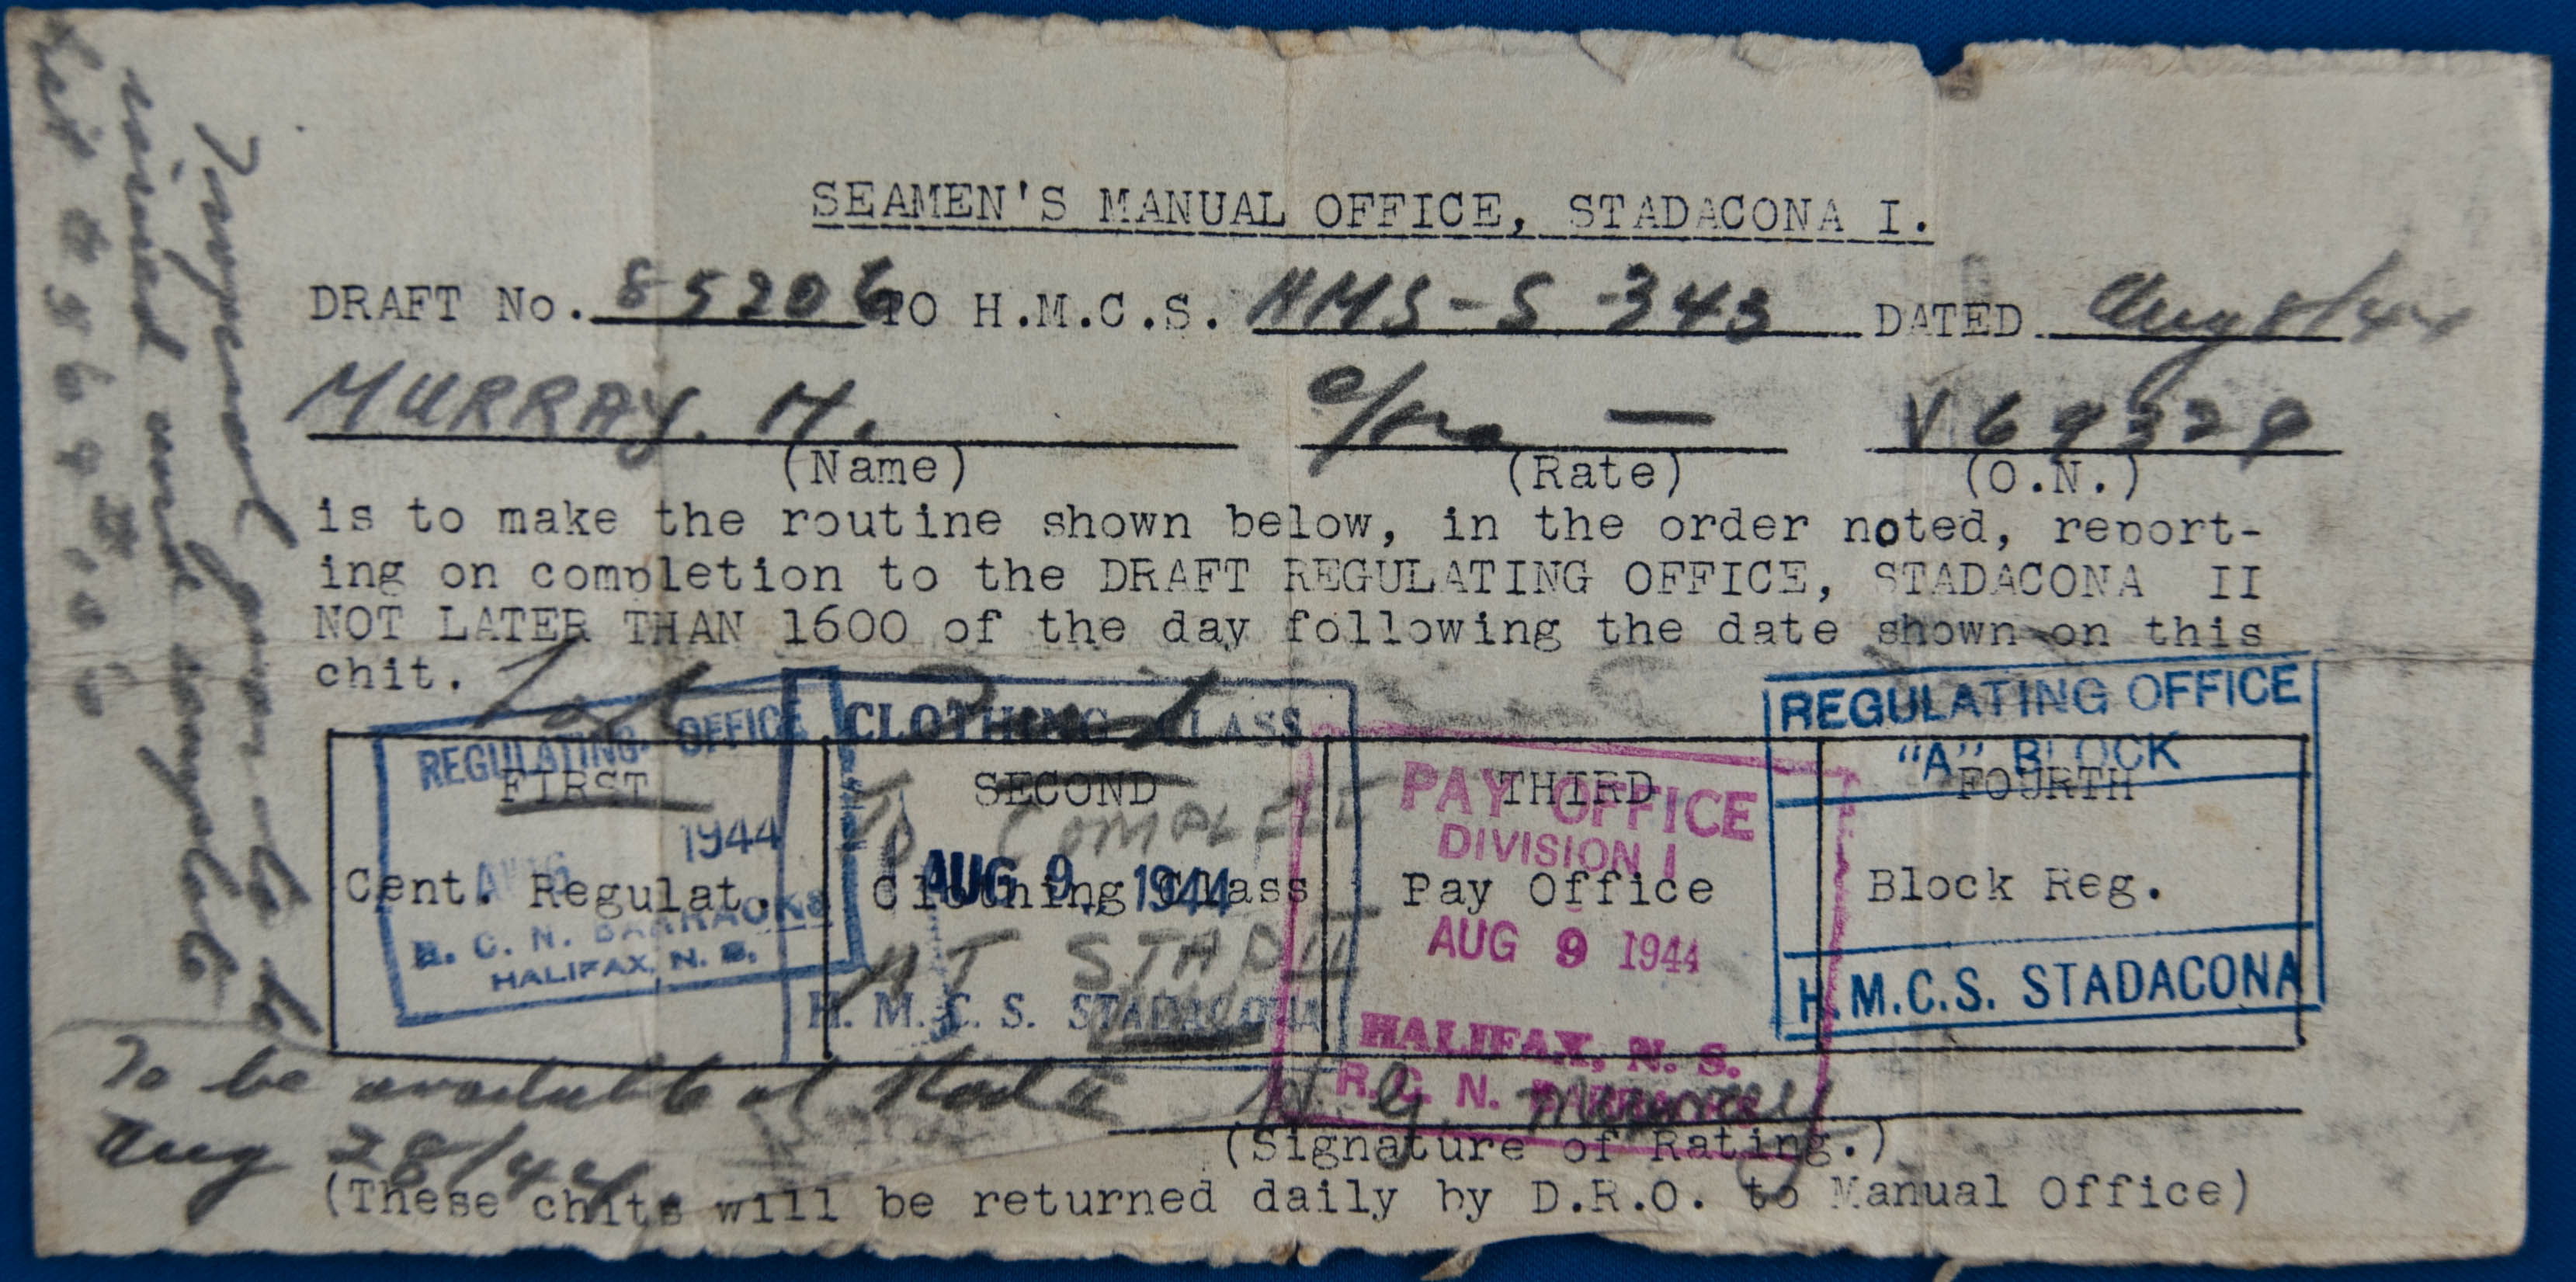 SEAMEN'S MANUAL OFFICE, STADACONA I.
DRAFT No. 85206 TO H.M.C.S. HMS-S-343 DATED Aug 8/44
MURRAY. H. V69329
(Name) (Rate) (O.N.)
is to make the routine shown below, in the order noted, report-
ing on completion to the DRAFT REGULATING OFFICE, STADACONA II
NOT LATER THAN 1600 of the day following the date shown on this
chit.
FIRST
Cent. Regulat.
REGULATING OFFICE
AUG 1944
R. C. N. BARRACKS
HALIFAX, N. S.
SECOND
Clothing Class
CLOTHING CLASS
AUG 9 1944
H. M. C. S. STADACONA
TO COMPLETE
AT STAD II
THIRD
Pay Office
PAY OFFICE
DIVISION 1
AUG 9 1944
HALIFAX, N. S.
R. C. N. BARRACKS
FOURTH
Block Reg.
REGULATING OFFICE
"A" BLOCK
H.M.C.S. STADACONA
To be available at Stad II
Aug 28/44
H G Murray
(Signature of Rating.)
(These chits will be returned daily by D.R.O. to Manual Office)